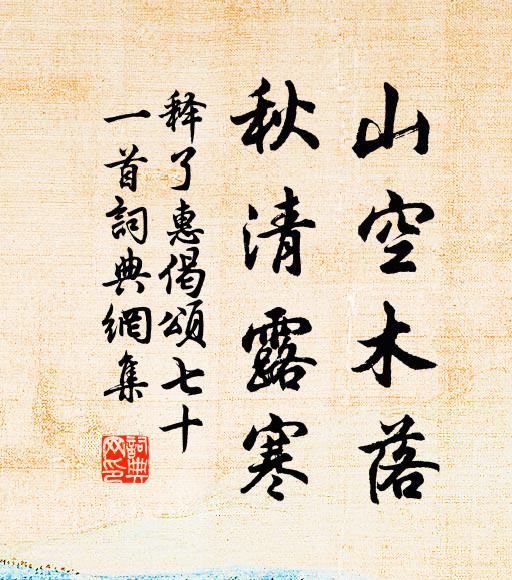 山空木落
秋清露寒
释了惠偈颂七十
一首詞典網集
詞典
网印